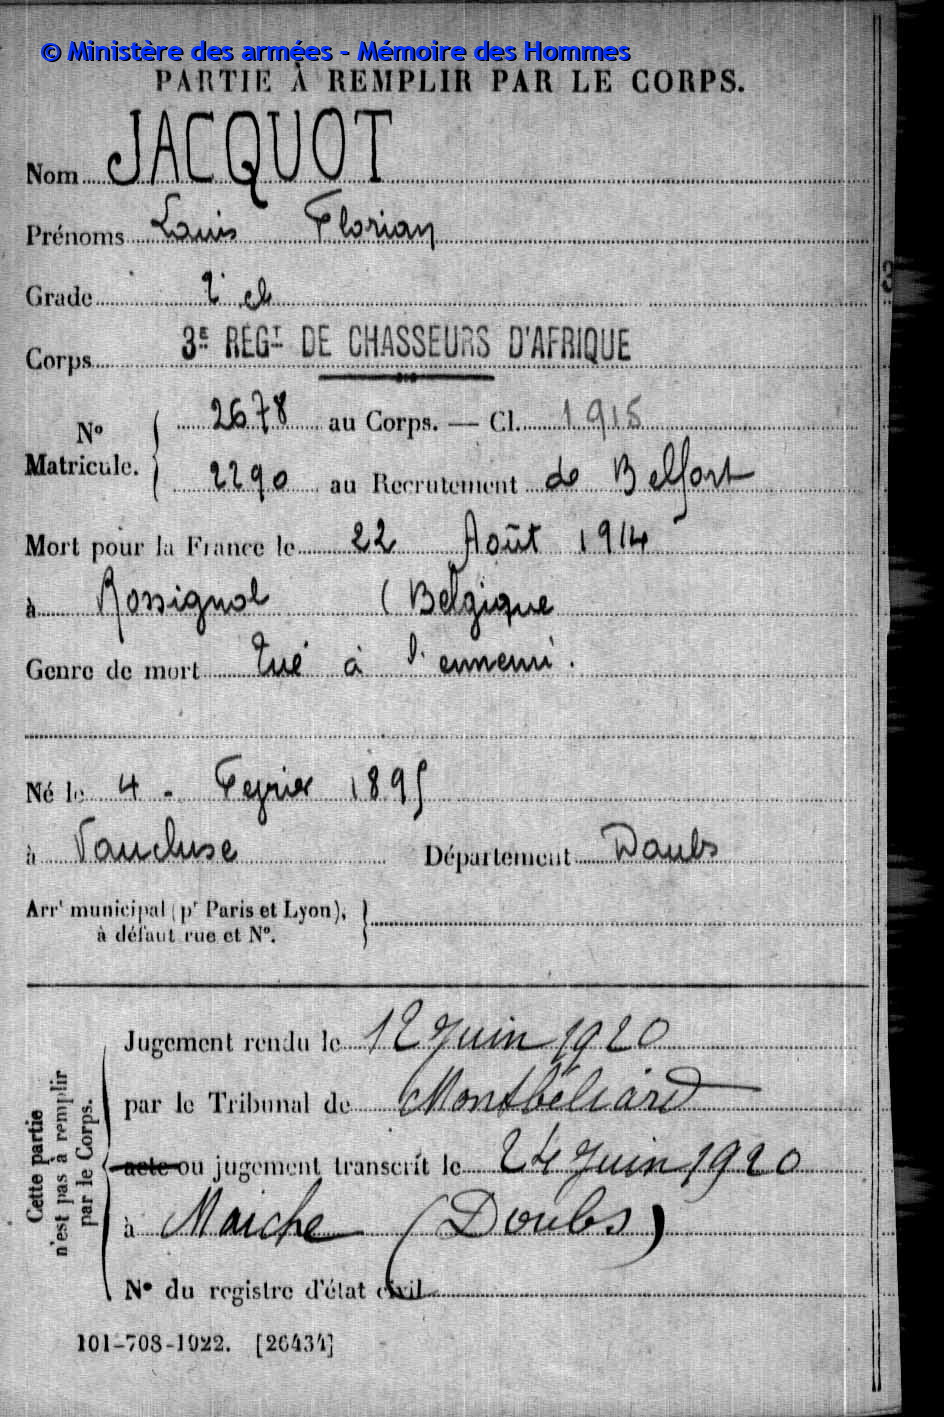 © Ministère des armées - Mémoire des Hommes
PARTIE À REMPLIR PAR LE CORPS.
Nom JACQUOT
Prénoms Louis Florian
Grade 2e cl
Corps 3E RÉGT DE CHASSEURS D'AFRIQUE
No Matricule. 2678 au Corps. — Cl. 1915
2290 au Recrutement de Belfort
Mort pour la France le 22 Août 1914
à Rossignol (Belgique
Genre de mort tué à l'ennemi.
Né le 4 - Fevrier 1895
à Vaucluse Département Doubs
Arrt municipal (pr Paris et Lyon),
à défaut rue et No.
Cette partie
n'est pas à remplir
par le Corps.
Jugement rendu le 12 Juin 1920
par le Tribunal de Montbéliard
acte ou jugement transcrit le 24 Juin 1920
à Maiche (Doubs)
No du registre d'état civil
101-708-1922. [26434]
3